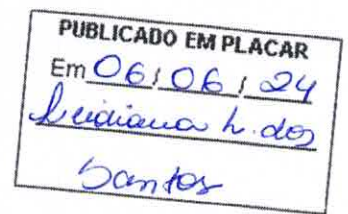 PUBLICADO EM PLACAR
Em 06/06/24
Leidiana L. dos
Santos